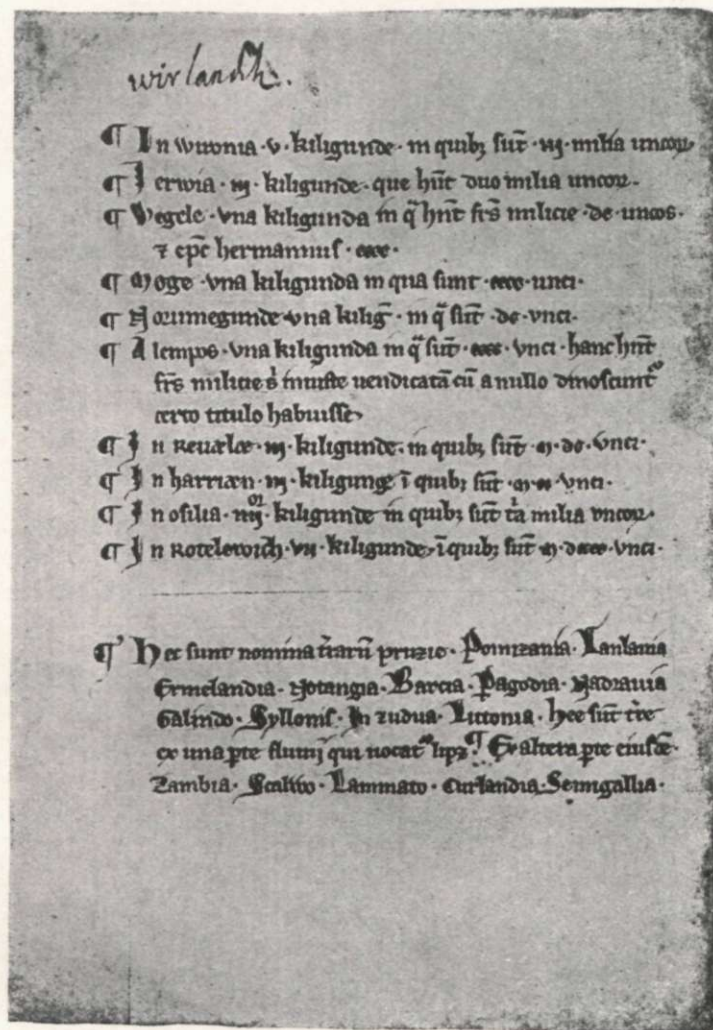 wirlandh.
¶ In wironia · v · kiligunde · in quibꝫ sūt · iij · milia uncoꝝ
¶ Jerwia · iij · kiligunde · que hn̄t duo milia uncoꝝ ·
¶ Vegele · vna kiligunda in q̄ hn̄t frs̄ milicie · dc · uncos ·
⁊ ep̄c hermannus · cccc ·
¶ Moge · vna kiligunda in qua sunt · cccc · unci ·
¶ Normegunde · vna kiliḡ · in q̄ sūt · dc · vnci ·
¶ Alempos · vna kiligunda in q̄ sūt · cccc · vnci · hanc hn̄t
frs̄ milicie s; iniuste uendicatā cū a nullo dinoscunt᷑
certo titulo habuisse
¶ In Reuælæ · iij · kiligunde · in quibꝫ sūt · m · dc · vnci ·
¶ In harriæn · iij · kiligunge ī quibꝫ sūt · m · cc · vnci ·
¶ In osilia · kiligunde in quibꝫ sūt tͥa milia vncoꝝ ·
¶ In Rotelewich · vij · kiligunde, ī quibꝫ sūt m · dcccc · vnci ·
¶ Hec sunt nomina t̄rarū pruzie · Pomizania · Lanlania
Ermelandia · Notangia · Barcia · Pagodia · Nadrauia
Galindo · Syllonis · In zudua · Littonia · hee sūt t̄re
ex una ꝑte fluuij qui uocat᷑ lipz · ¶ Ex altera ꝑte eiusdē ·
Zambia · Scalwo · Lammato · Curlandia · Semigallia ·